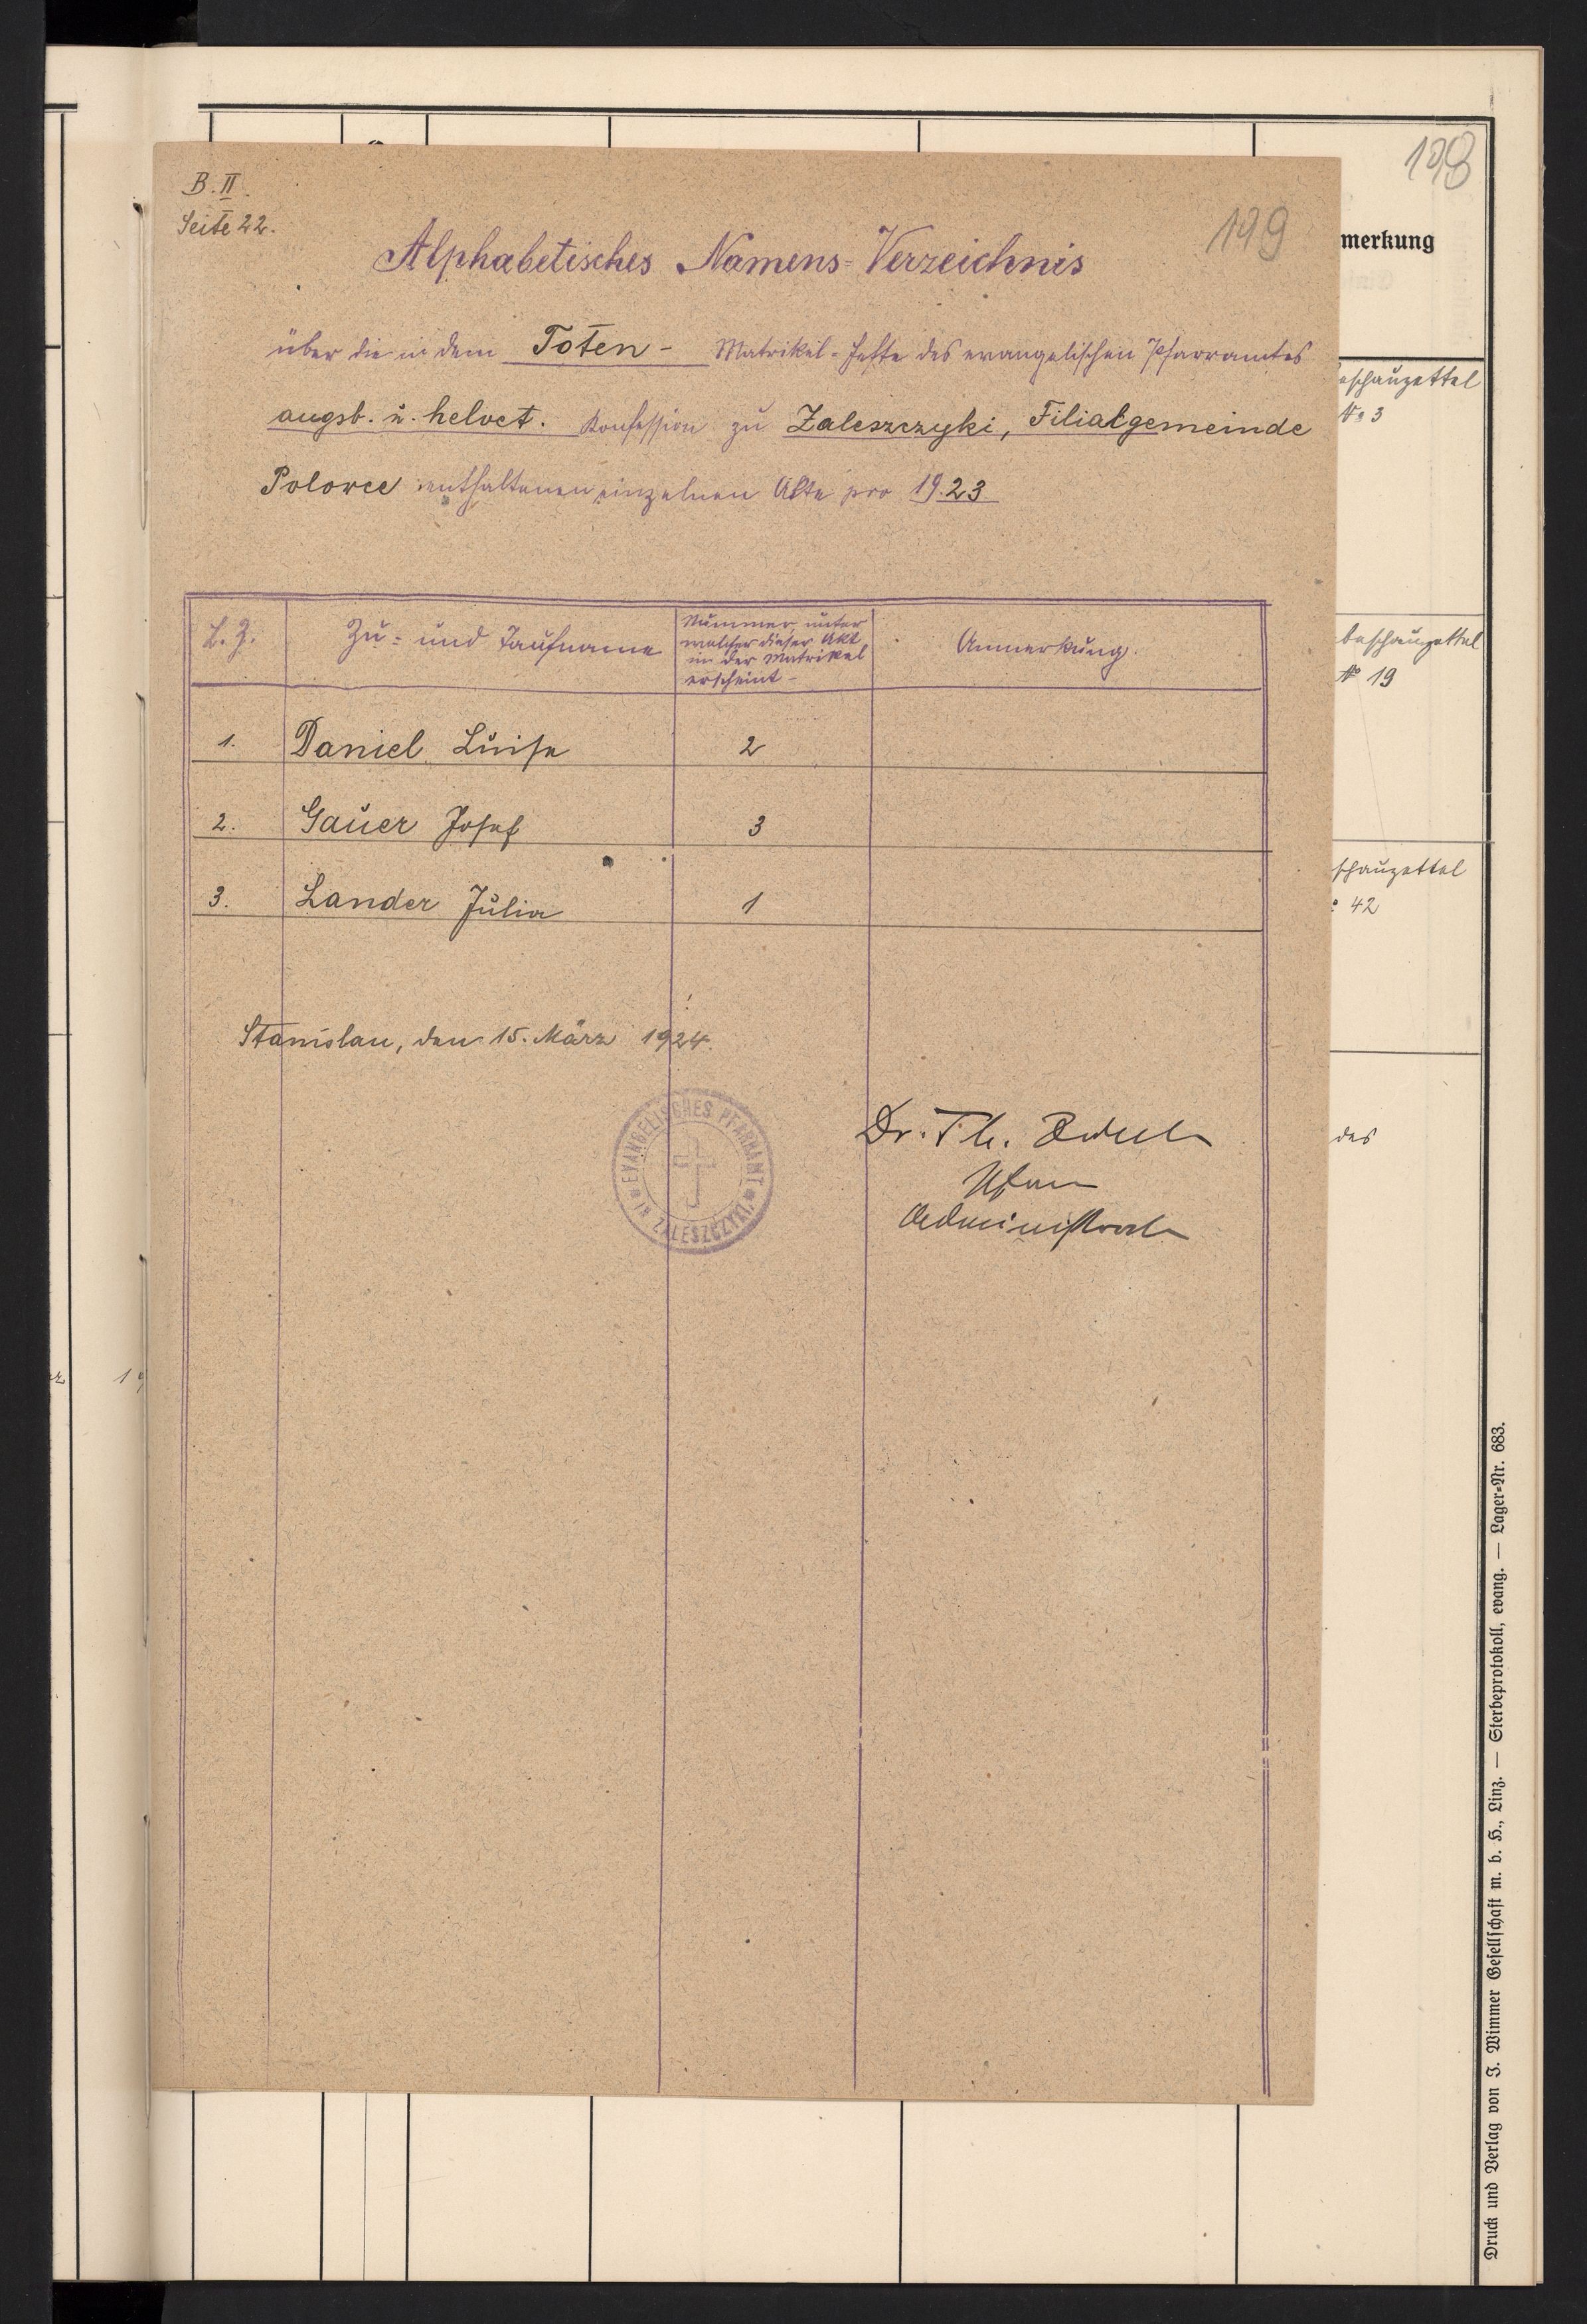 198
B. II.
Seite 22.
199
Alphabetisches Namens-Verzeichnis
über die in dem Toten- Matrikel-Hefte des evangelischen Pfarramtes
augsb. u. helvet. Konfession zu Zaleszczyki, Filialgemeinde
Polowce enthaltenen einzelnen Akte pro 1923
L. Z.
Zu- und Taufname
Nummer, unter
welcher dieser Akt
in der Matrikel
erscheint-
Anmerkung.
1. Daniel Luise 2
2. Gauer Josef 3
3. Lander Julia 1
Stanislau, den 15. März 1924.
EVANGELISCHES PFARRAMT
IN ZALESZCZYKI
Dr. Th.
Administrator
merkung
eschauzettel
No 3
beschauzettel
No 19
schauzettel
42
des
Druck und Verlag von J. Wimmer Gesellschaft m. b. H., Linz. — Sterbeprotokoll, evang. — Lager-Nr. 683.